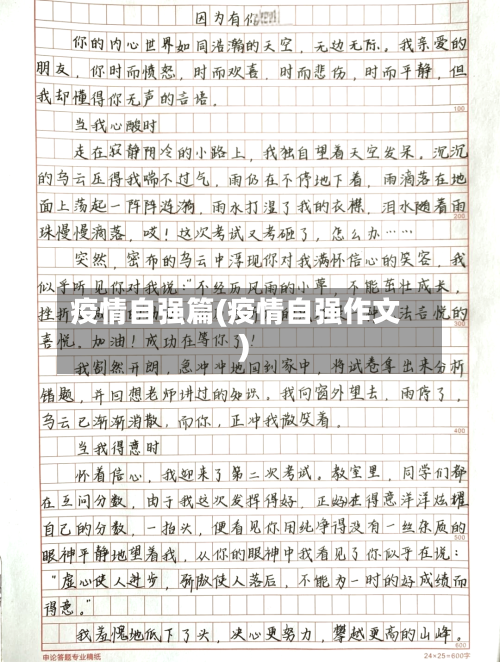 因为有你
你的内心世界如同浩瀚的天空，无边无际。我亲爱的
朋友，你时而愤怒，时而欢喜，时而悲伤，时而平静，但
我却懂得你无声的言语。
100
当我心酸时
走在寂静阴冷的小路上，我独自望着天空发呆。沉沉
的乌云压得我喘不过气，雨仍在不停地下着，雨滴落在地
面上荡起一阵阵涟漪，雨水打湿了我的衣襟，泪水随着雨
200
珠慢慢滴落，哎！这次考试又考砸了，怎么办……
突然，密布的乌云中浮现你对我满怀信心的笑容，我
似乎听见你对我说："不经历风雨的小草，不能茁壮成长，
挫折
法言悦的
疫情自强篇(疫情自强作文
)
喜悦。加油！成功在等你了！
我豁然开朗，急冲冲地回到家中，将试卷拿出来分析
错题，并回想老师讲过的知识。我向窗外望去，雨停了，
乌云已渐渐消散，而你，正冲我微笑着。
400
当我得意时
怀着信心，我迎来了第二次考试。教室里，同学们都
在互问分数，由于我这次发挥得好，正好在得意洋洋炫耀
自己的分数，一抬头，便看见你用纯净得没有一丝杂质的
500
眼神平静地望着我，从你的眼神中我看见了你似乎在说：
"虚心使人进步，骄傲使人落后，不能为一时的好成绩而
得意。"
我羞愧地低下了头，决心更努力，攀越更高的山峰。
600
申论答题专业稿纸
24×25=600字